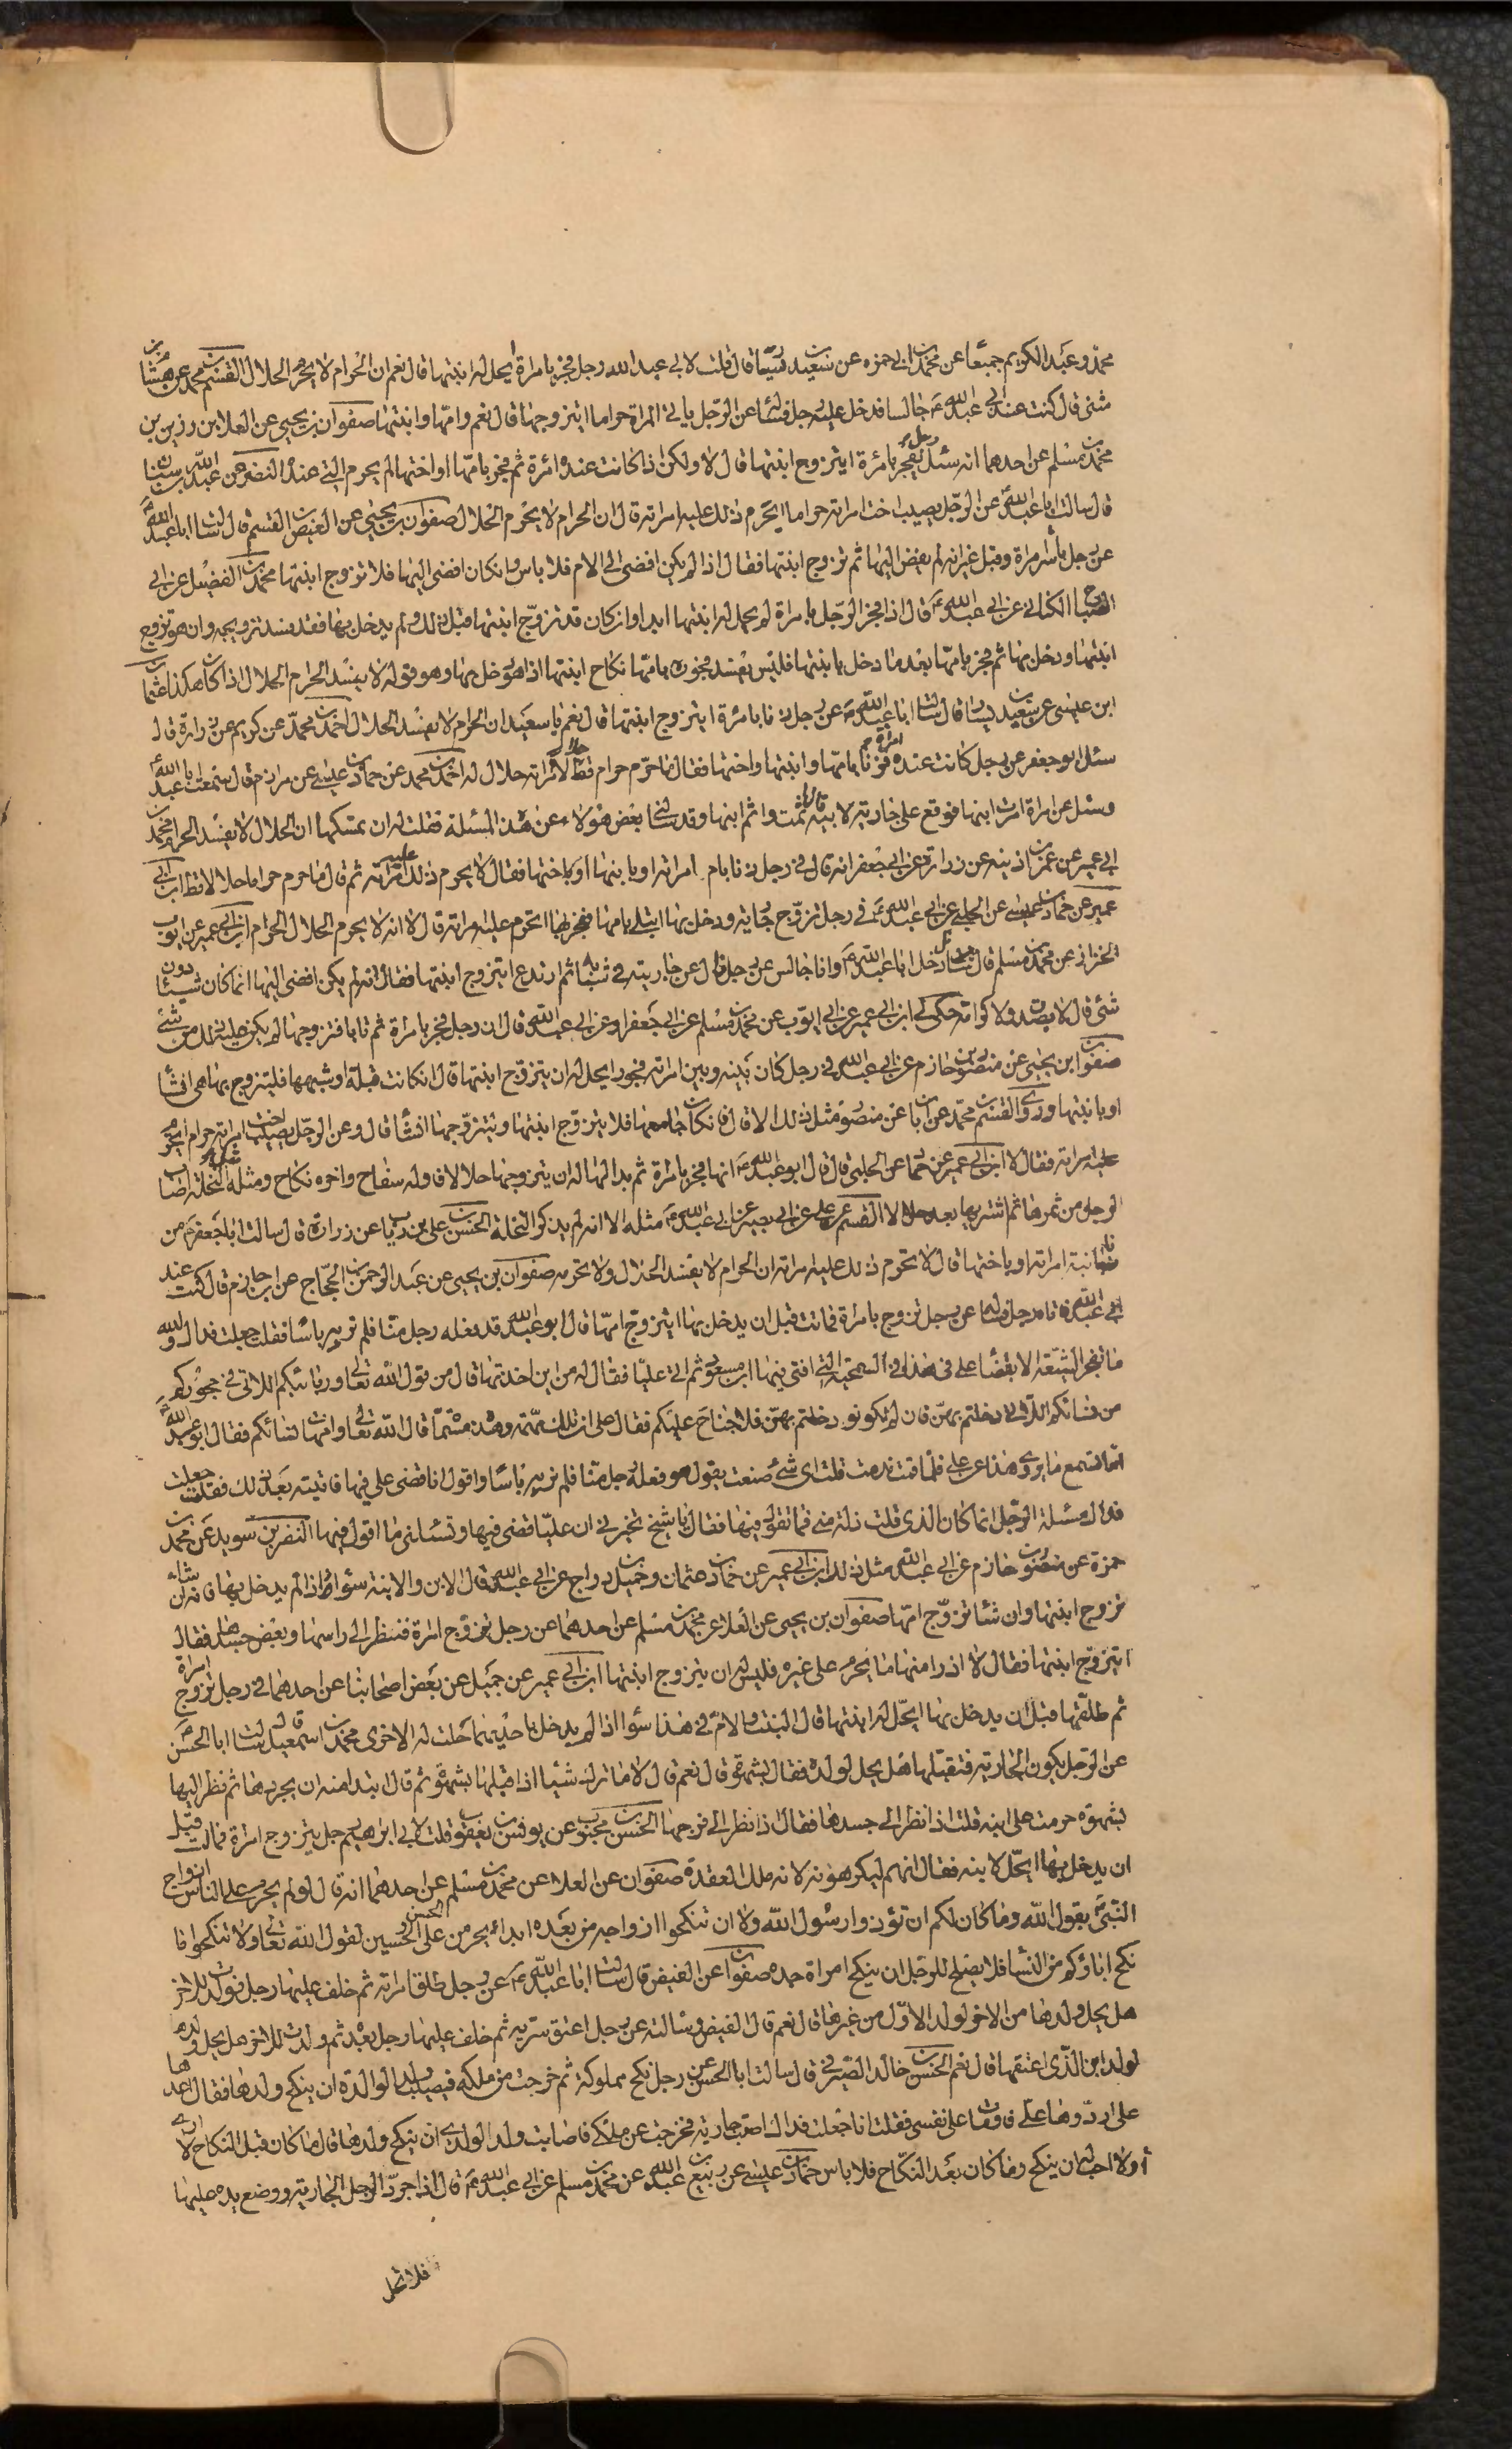 محمد وعبد الكريم جميعا عن محمد بن ابي حمزه عن سعيد بن يسار قال قلت لابي عبد الله رجل فجر بامراة ايحل له ابنتها قال نعم ان الحرام لا يحرم الحلال القسم بن محمد عن هشام بن
مثنى قال كنت عند ابي عبد الله ع جالسا فدخل عليه رجل فسئله عن الرجل ياتي المراة حراما ايتزوجها قال نعم وامها وابنتها صفوان بن يحيى عن العلا بن رزين بن
محمد بن مسلم عن احدهما انه سئل رجل يفجر بامرئة ايتزوج ابنتها قال لا ولكن اذا كانت عنده امرئة ثم فجر بامها او اختها لم يحرم التي عنده النضر عن عبد الله بن سنان
قال سالت ابا عبد الله عن الرجل يصيب اخت امراته حراما ايحرم ذلك عليه امراته قال ان الحرام لا يحرم الحلال صفوان بن يحيى عن العيص بن القسم قال سالت ابا عبد الله
عن رجل باشر مراة وقبل غير انه لم يفض اليها ثم تزوج ابنتها فقال اذا لم يكن افضى الى الام فلا باس وان كان افضى اليها فلا تزوج ابنتها محمد بن الفضيل عن ابي
الصباح الكناني عن ابي عبد الله ع قال اذا فجر الرجل بامراة لم يحل له ابنتها ابدا وان كان قد تزوج ابنتها قبل ذلك ولم يدخل بها فقد فسد تزويجه وان هو تزوج
ابنتها ودخل بها ثم فجر بامها بعد ما دخل بابنتها فليس يفسد فجوره بامها نكاح ابنتها اذا هو دخل بها وهو قوله لا يفسد الحرام الحلال اذا كان هكذا عثمان
ابن عيسى عن سعيد بن يسار قال سالت ابا عبد الله ع عن رجل زنا بامرئة ايتزوج ابنتها قال نعم يا سعيد ان الحرام لا يفسد الحلال احمد بن محمد عن كريم عن زرارة قال
سئل ابو جعفر عن رجل كانت عنده امراة فزنا بامها وابنتها واختها فقال ما حرم حرام قط حلالا امراته حلال له احمد بن محمد عن حماد بن عيسى عن مرازم قال سمعت ابا عبد الله
وسئل عن امراة امرت ابنها فوقع على جارية لابيه قال اثمت واثم ابنها وقد سالني بعض هؤلاء عن هذه المسئلة فقلت له ان يمسكها ان الحلال لا يفسد الحرام محمد بن
ابي عمير عن عمر بن اذينه عن زرارة عن ابي جعفر انه قال في رجل زنا بام امراته او بابنتها او باختها فقال لا يحرم ذلك عليه امراته ثم قال ما حرم حراما حلالا قط ابن ابي
عمير عن حماد بن عيسى عن الحلبي عن ابي عبد الله ع في رجل تزوج جارية ودخل بها ابتلي بامها ففجر بها اتحرم عليه امراته قال لا انه لا يحرم الحلال الحرام ابن ابي عمير عن ايوب
الخزاز عن محمد بن مسلم قال سئل رجل ابا عبد الله ع وانا جالس عن رجل نال عن جاريته في شبابه ثم ارتدع ايتزوج ابنتها فقال انه لم يكن افضى اليها انما كان شيئا دون
شئ قال لا يصدق ولا كرامة حكى لي ابن ابي عمير عن ابي ايوب عن محمد بن مسلم عن ابي جعفر او عن ابي عبد الله قال ان رجل فجر بامراة ثم تابا فتزوجها لم يكن عليه ذلك من شئ
صفوان ابن يحيى عن منصور بن حازم عن ابي عبد الله في رجل كان بينه وبين امراته فجور ايحل له ان يتزوج ابنتها قال ان كانت قبلة او شبهها فليتزوج بها هي انشاء
او بابنتها وروى القسم بن محمد عن ابان عن منصور مثل ذلك الا قال فان كان جامعها فلا يتزوج ابنتها ويتزوجها انشاء قال وعن الرجل يصيب اخت امراته حرام ايحرم
عليه امراته فقال لا ابن ابي عمير عن حماد عن الحلبي قال قال ابو عبد الله ع ايما فجر بامرئة ثم بدا لهما ان يتزوجها حلالا فاوله سفاح واخره نكاح ومثله مثل النخلة اصاب
الرجل من ثمرها ثم اشتريها بعد حلالا القسم عن علي عن ابي بصير عن ابي عبد الله ع مثله الا انه لم يذكر النخلة الحسن بن علي بن رئاب عن زرارة قال سالت ابا جعفر ع من
زنا بابنة امراته او باختها قال لا تحرم ذلك عليه امراته ان الحرام لا يفسد الحلال ولا تحرمه صفوان بن يحيى عن عبد الرحمن بن الحجاج عن ابن حازم قال كنت عند
ابي عبد الله ع فاتاه رجل فساله عن رجل تزوج بامراة فماتت قبل ان يدخل بها ايتزوج امها قال ابو عبد الله قد فعله رجل منا فلم نر به باسا فقلت جعلت فداك والله
ما تفخر الشيعة الا بقضاء علي في هذا في السمحية التي افتى فيها ابن مسعود ثم اتى عليا فقال له من اين اخذتها قال من قول الله تعالى وربائبكم اللاتي في حجوركم
من نسائكم اللاتي دخلتم بهن فان لم تكونوا دخلتم بهن فلا جناح عليكم فقال علي ان تلك مبهمة وهذه مسماة قال الله تعالى وامهات نسائكم فقال ابو عبد الله
اما تسمع ما يروي هذا عن علي فلما قمت ندمت قلت اى شئ صنعت يقول هو فعله رجل منا فلم نر به باسا واقول انا قضى علي فيها فاتيته بعد ذلك فقلت جعلت
فداك مسئلة الرجل انما كان الذي قلت زلة مني فما تقول فيها فقال يا شيخ تخبرني ان عليا قضى فيها وتسئلني ما اقول فيها النضر بن سويد عن محمد بن
حمزة عن منصور بن حازم عن ابي عبد الله مثل ذلك ابن ابي عمير عن حماد بن عثمان وجميل بن دراج عن ابي عبد الله قال الابن والابنة سواء اذا لم يدخل بها فانه ان شاء
تزوج ابنتها وان شاء تزوج امها صفوان بن يحيى عن العلا عن محمد بن مسلم عن احدهما عن رجل تزوج امراة فنظر الى راسها وبعض جسدها فقال
ايتزوج ابنتها فقال لا اذ رأى منها ما يحرم على غيره فليس له ان يتزوج ابنتها ابن ابي عمير عن جميل عن بعض اصحابنا عن احدهما في رجل تزوج امراة
ثم طلقها قبل ان يدخل بها ايحل له ابنتها قال البنت والام في هذا سواء اذا لم يدخل باحديهما حلت له الاخرى محمد بن اسمعيل قال سالت ابا الحسن
عن الرجل يكون له الجارية فتقبلها هل يحل لولده فقال بشهوة قال نعم قال لا ما ترك شيئا اذا قبلها بشهوة ثم قال ابتداء منه ان يجردها ثم نظر اليها
بشهوة حرمت على ابنه قلت اذا نظر الى جسدها فقال اذا نظر الى فرجها الحسن بن محبوب عن يونس بن يعقوب قلت لابي ابراهيم رجل يتزوج امرئة فماتت قبل
ان يدخل بها ايحل لابنه فقال انهم ليكرهونه لانه ملك العقدة صفوان عن العلاء عن محمد بن مسلم عن احدهما انه قال لو لم يحرم على الناس ازواج
النبي بقول الله وما كان لكم ان تؤذوا رسول الله ولا ان تنكحوا ازواجه من بعده ابدا يحرمن على الحسن والحسين لقول الله تعالى ولا تنكحوا ما
نكح اباؤكم من النساء فلا يصلح للرجل ان ينكح امراة جده صفوان عن العيص قال سالت ابا عبد الله ع عن رجل طلق امراته ثم خلف عليها رجل فولدت للاخر
هل يحل ولدها من الاخر لولد الاول من غيرها قال نعم قال العيص وسالته عن رجل اعتق سرية ثم خلف عليها رجل بعده ثم ولدت للاخر هل يحل ولدها
لولد ابن الذي اعتقها قال نعم الحسن بن خالد الصيرفي قال سالت ابا الحسن عن رجل نكح مملوكة ثم خرجت من ملكه فيصيب ولدا لوالده ان ينكح ولدها فقال اعدها
على اردد وها علي فاوقفت على نفسي فقلت انا جعلت فداك اصبت جارية فخرجت عن ملكي فاصابت ولد الولدي ان ينكح ولدها قال ما كان قبل النكاح لا ارى
ولا احب له ان ينكح وما كان بعد النكاح فلا باس حماد بن عيسى عن ربيع بن عبد الله عن محمد بن مسلم عن ابي عبد الله ع قال اذا جرد الرجل الجارية ووضع يده عليها
فلا تحل